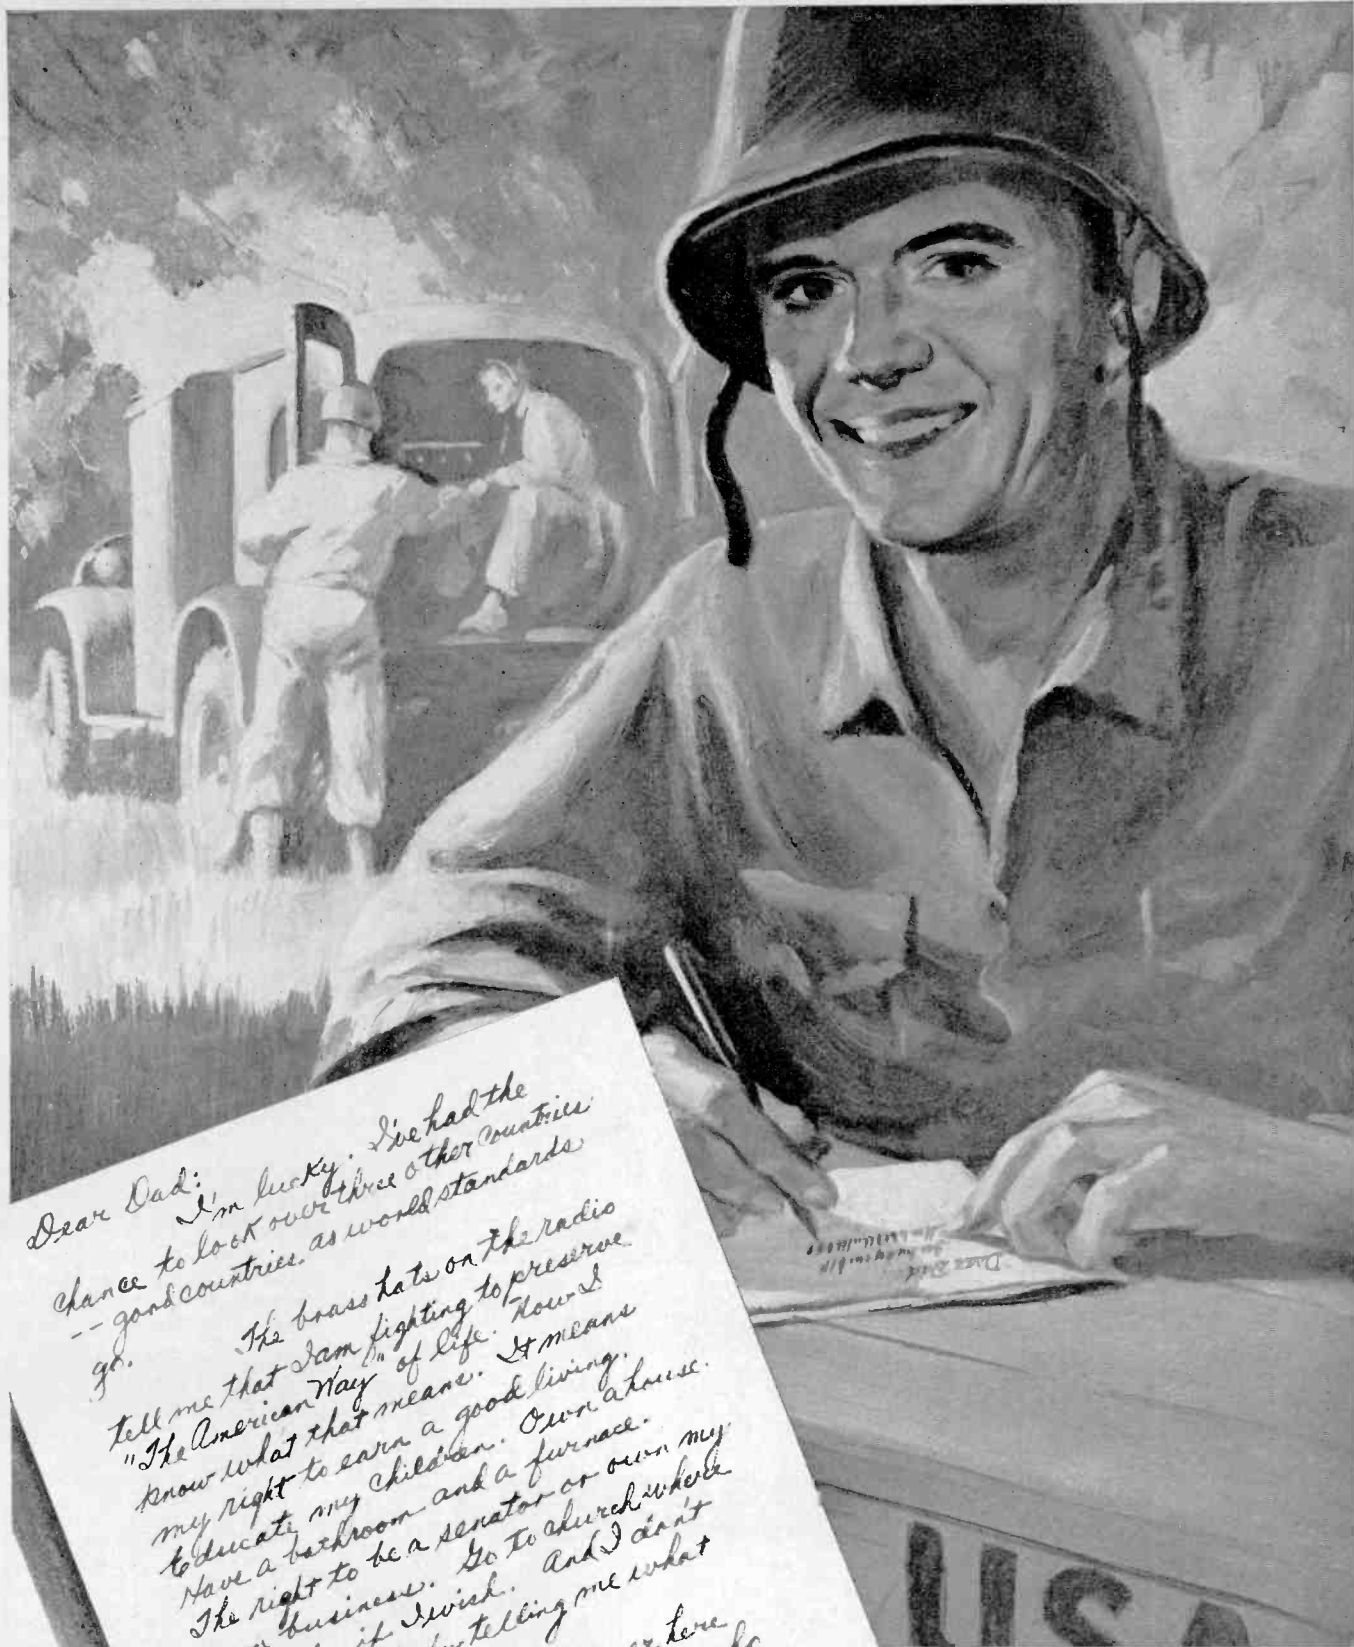 Dear Dad:
I'm lucky. I've had the
chance to look over three other countries
-- good countries. as world standards
go.
The brass hats on the radio
tell me that I am fighting to preserve
"The American Way" of life. Now I
know what that means. It means
my right to earn a good living.
Educate my children. Own a house.
Have a bathroom and a furnace.
The right to be a senator or own my
business. Go to church where
if I wish. And I don't
telling me what
here
USA